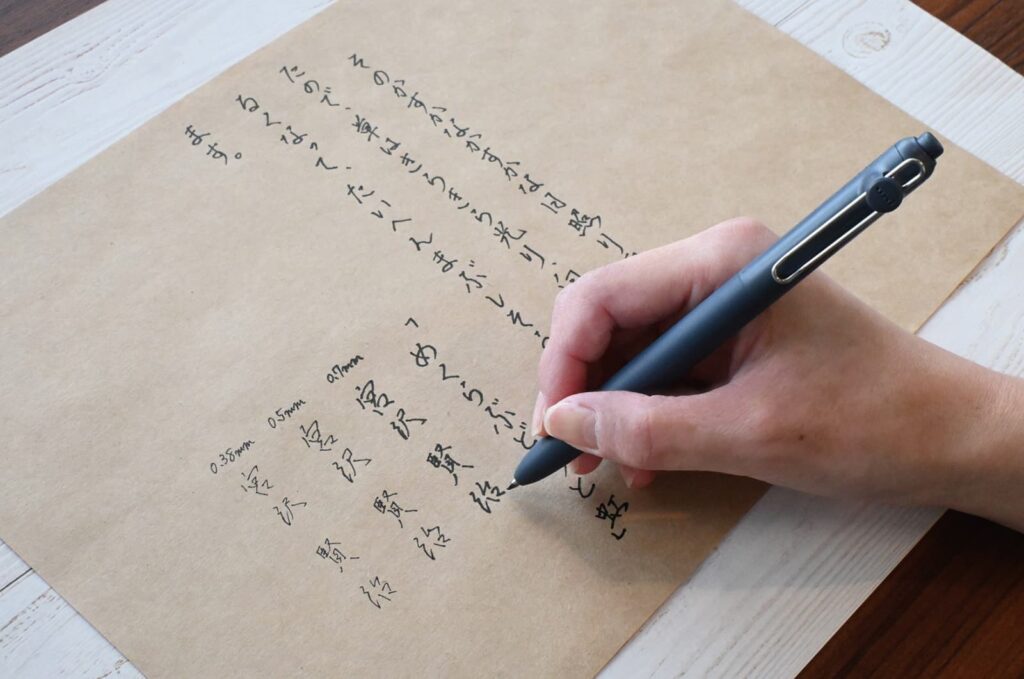 そのかすかなかすかな日照り
たので、草はきらきら光り、向
るくなって、たいへんまぶしそう
ます。
「めくらぶど と虹」
0.7mm 宮沢 賢治
0.5mm 宮沢 賢治
0.38mm 宮沢 賢治